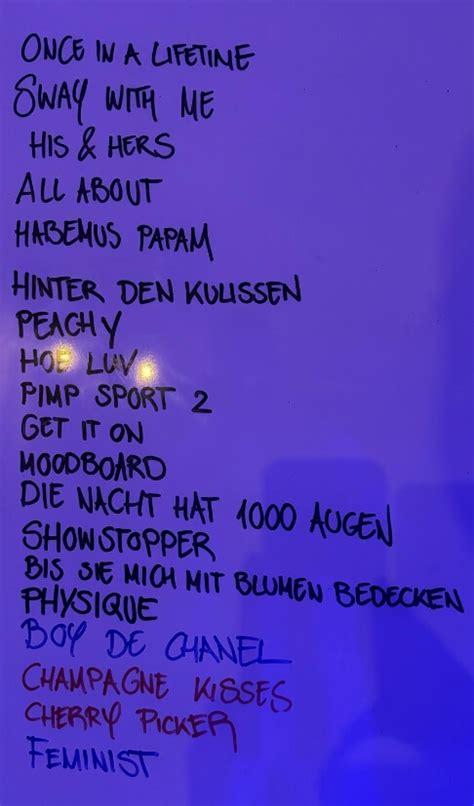 ONCE IN A LIFETIME
SWAY WITH ME
HIS & HERS
ALL ABOUT
HABEMUS PAPAM
HINTER DEN KULISSEN
PEACHY
HOE LUV
PIMP SPORT 2
GET IT ON
MOODBOARD
DIE NACHT HAT 1000 AUGEN
SHOWSTOPPER
BIS SIE MICH MIT BLUMEN BEDECKEN
PHYSIQUE
BOY DE CHANEL
CHAMPAGNE KISSES
CHERRY PICKER
FEMINIST